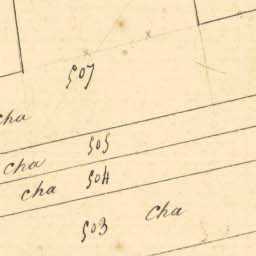 507
cha
cha 505
cha 504
503 cha